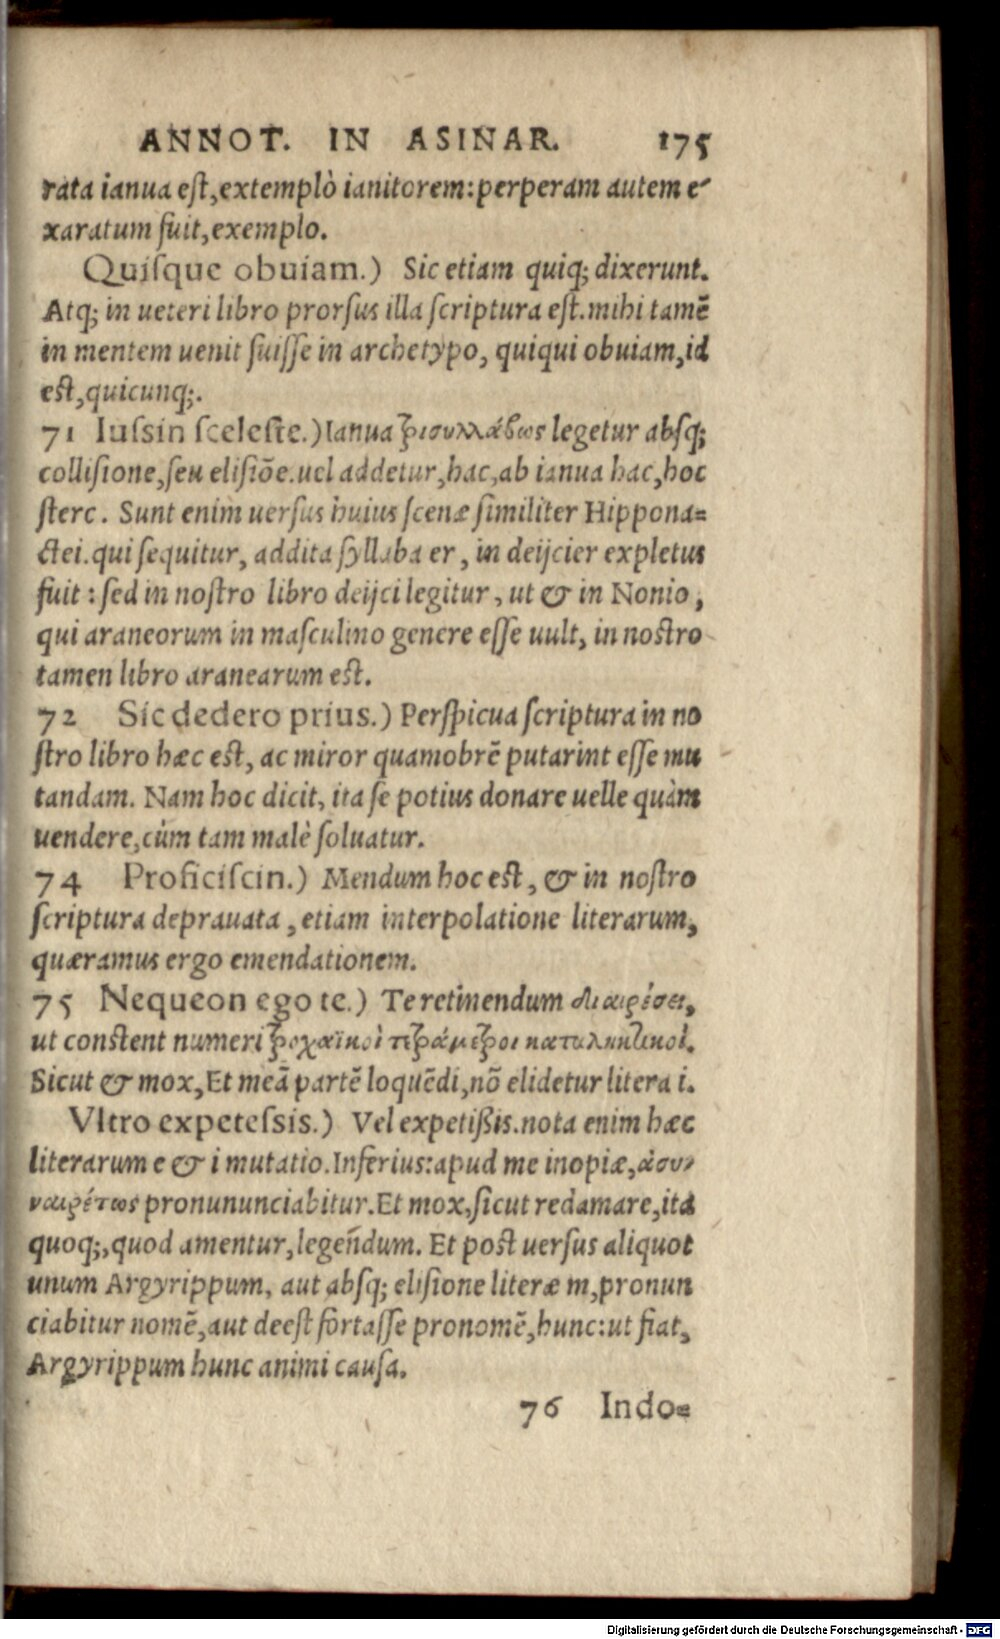 ANNOT. IN ASINAR. 175
rata ianua est, extemplò ianitorem: perperam autem e-
xaratum fuit, exemplo.
Quisque obuiam.) Sic etiam quiq; dixerunt.
Atq; in ueteri libro prorsus illa scriptura est. mihi tamẽ
in mentem uenit fuisse in archetypo, quiqui obuiam, id
est, quicunq;.
71 Iussin sceleste.) Ianua τρισυλλάβως legetur absq;
collisione, seu elisiõe. uel addetur, hac, ab ianua hac, hoc
sterc. Sunt enim uersus huius scenæ similiter Hippona=
ctei. qui sequitur, addita syllaba er, in deijcier expletus
fuit: sed in nostro libro deijci legitur, ut & in Nonio,
qui araneorum in masculino genere esse uult, in nostro
tamen libro aranearum est.
72 Sic dedero prius.) Perspicua scriptura in no
stro libro hæc est, ac miror quamobrẽ putarint esse mu
tandam. Nam hoc dicit, ita se potius donare uelle quàm
uendere, cùm tam malè soluatur.
74 Proficiscin.) Mendum hoc est, & in nostro
scriptura deprauata, etiam interpolatione literarum,
quæramus ergo emendationem.
75 Nequeon ego te.) Te retinendum διαιρέσει,
ut constent numeri τροχαϊκοὶ τετράμετροι καταληκτικοί.
Sicut & mox, Et meã partẽ loquẽdi, nõ elidetur litera i.
Vltro expetessis.) Vel expetißis. nota enim hæc
literarum e & i mutatio. Inferius: apud me inopiæ, ἀσυ-
ναιρέτως pronununciabitur. Et mox, sicut redamare, ita
quoq;, quod amentur, legeñdum. Et post uersus aliquot
unum Argyrippum, aut absq; elisione literæ m, pronun
ciabitur nomẽ, aut deest fortasse pronomẽ, hunc: ut fiat,
Argyrippum hunc animi causa.
76 Indo=
Digitalisierung gefördert durch die Deutsche Forschungsgemeinschaft - DFG